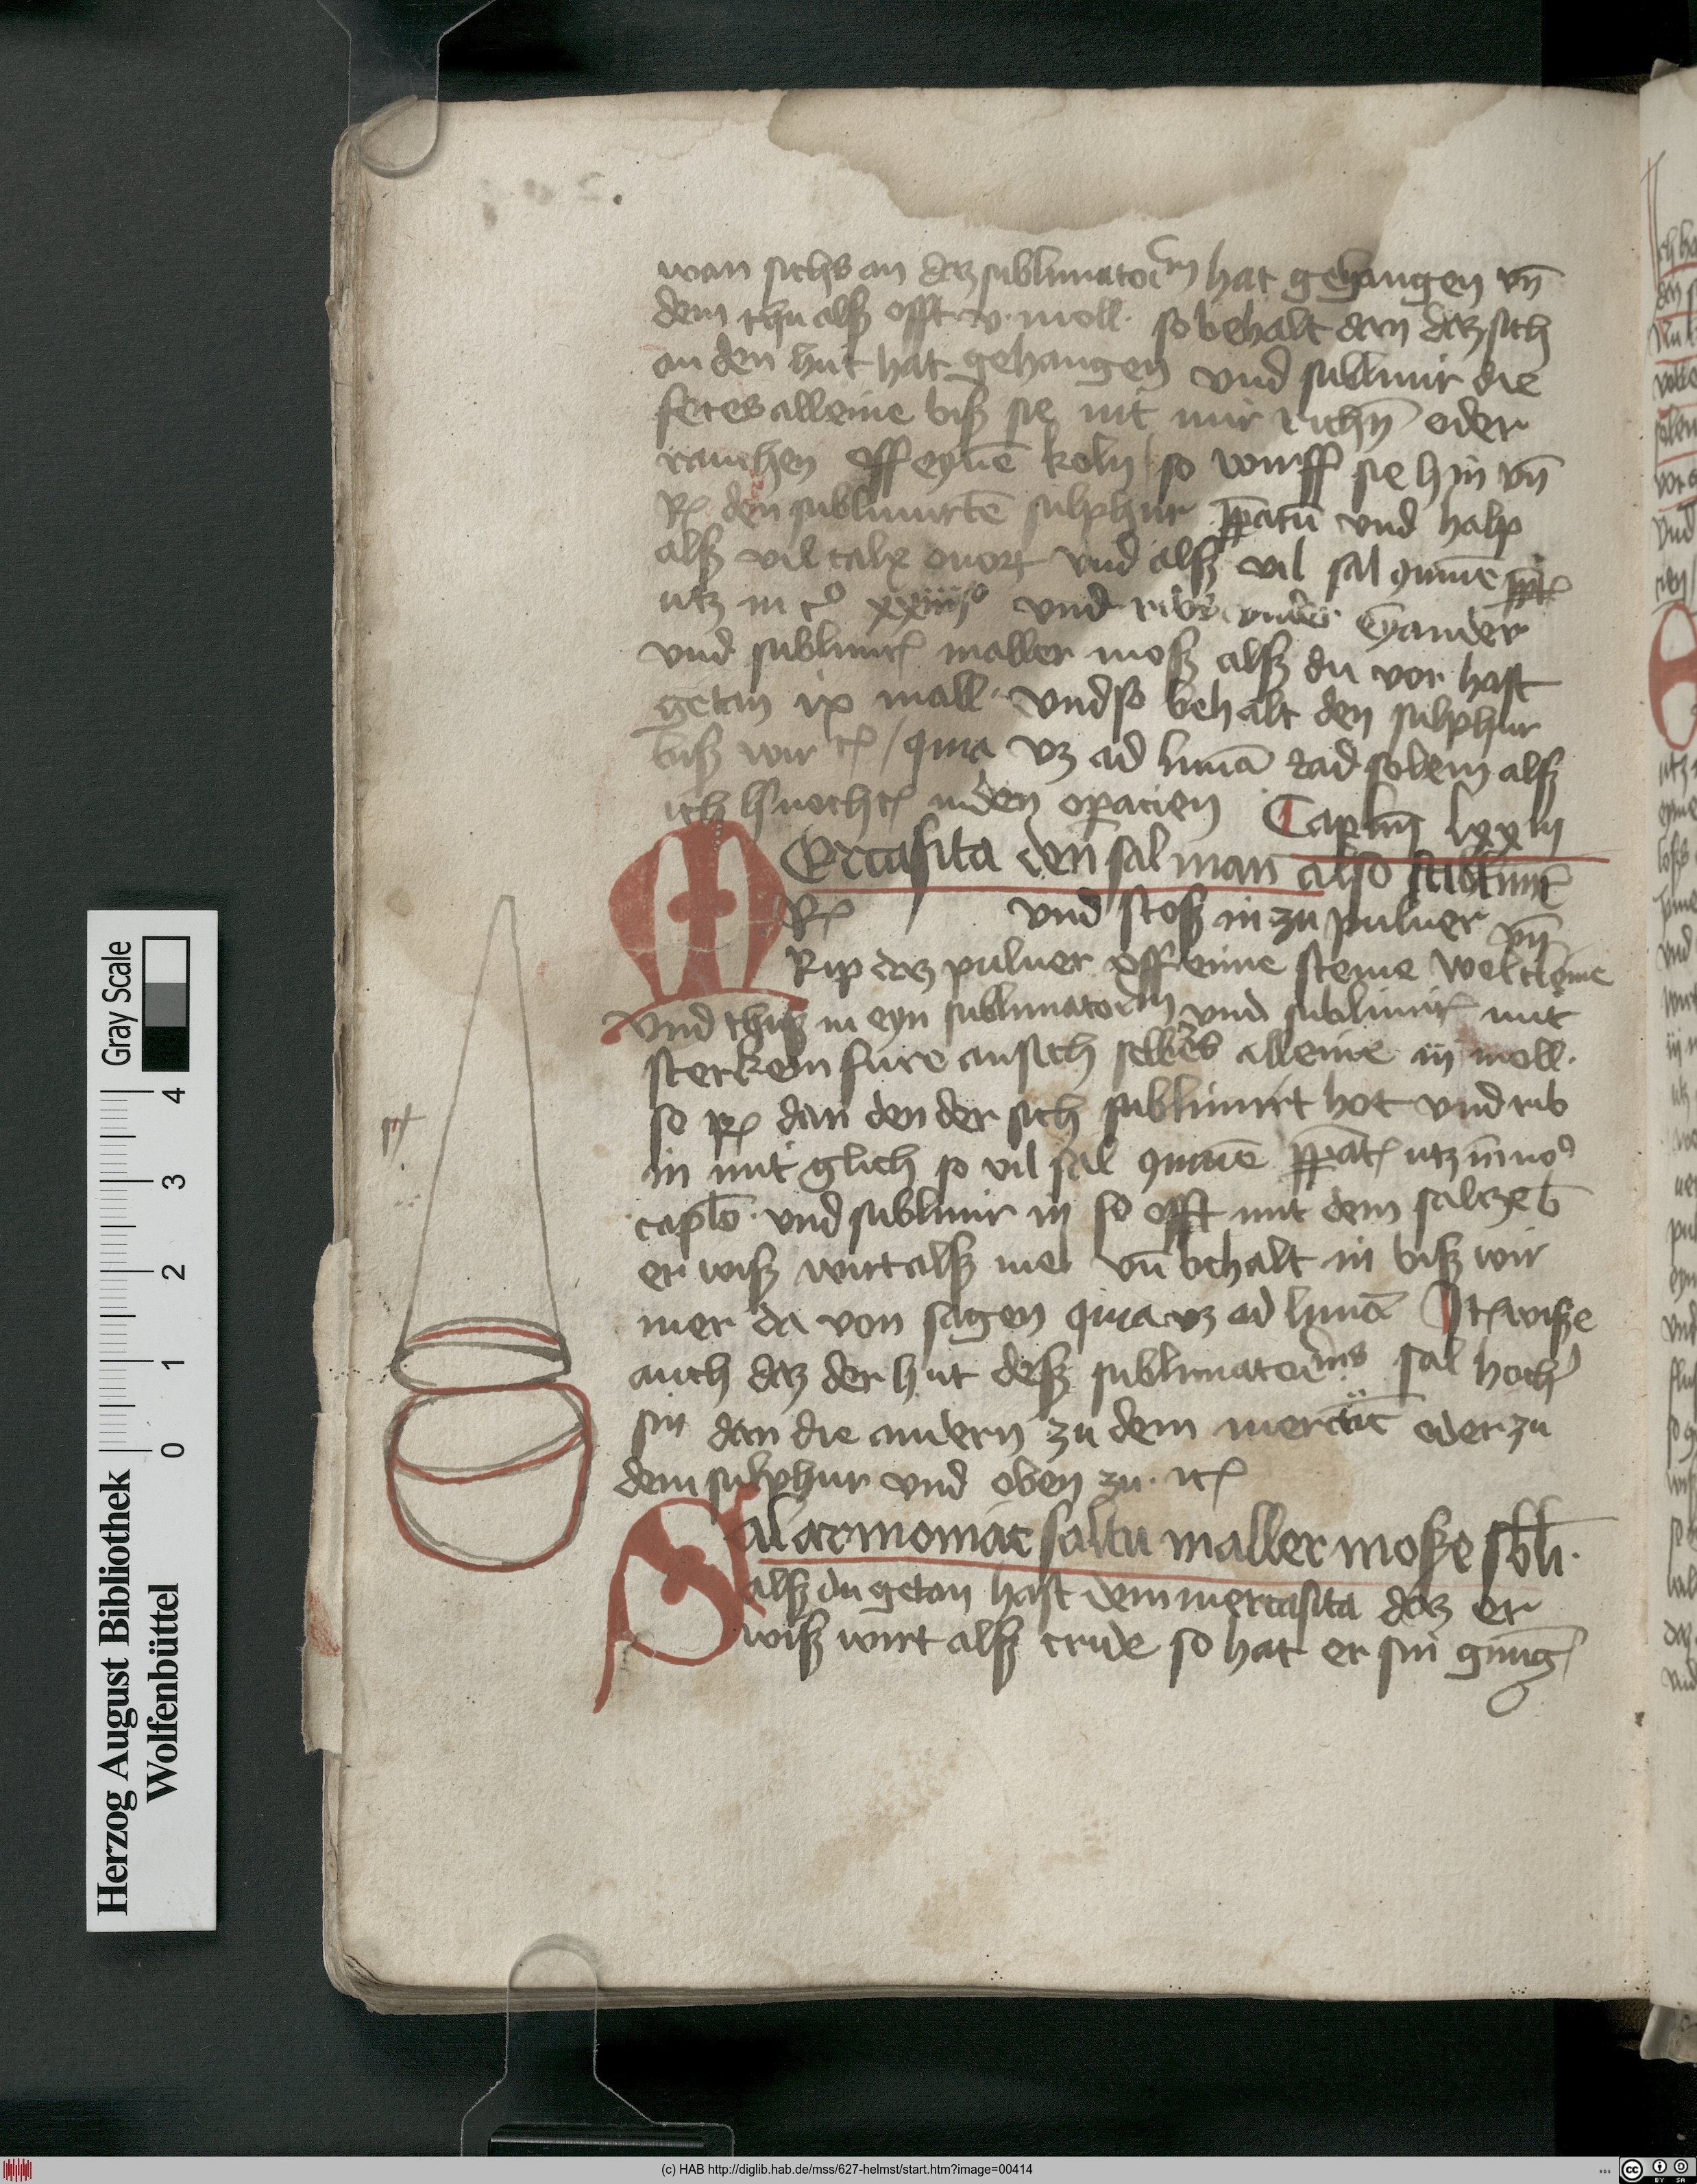 wan sichs an daz sublimatoriū hat gehangen vn̄
dem thu alß offt v moll. so behalt den daz sich
an den hut hat gehangen vnd sublimir die
feces alleine biß sie nit mir richn̄ oder
rauchen off eynē koln / so wurff sie hin vn̄
den sublimirtē sulphur p̄patū vnd halp
alß vil calx ouorū vnd alß vil sal
vnd
vnd sublimir in aller moß alß du vor hast
getan ix mall. vnd so behalt den sulphur
biß wir / quia vz ad lunā ad solem alß
ich in den opacien Caplm̄ lxxiii
MErcasita den sal man also sublimir
Rx vnd stoß in zu puluer vn̄
Rip daz puluer off eime steine wol cleine
vnd thuß in eyn sublimatoriū vnd sublimir mit
sterken fure an sich selbes alleine iij moll.
so Rx dan den der sich sublimirt hot vnd rib
in mit glich so vil sal
caplō. vnd sublimir in so offt mit dem saltze b
er wiß wirt alß mel vn̄ behalt in biß wir
mer da von sagen quia vz ad lunā Itē wisze
auch daz der hut deß sublimatoriūs sal hoch
sin dan die andern zu dem mercūr oder zu
dem sulphur vnd oben zu.
Sal armoniac saltu in aller mosze sbli.
alß du getan hast dem mercasita daz er
wiß wirt alß cride so hat er sin gnūg
Herzog August Bibliothek
Wolfenbüttel
Gray Scale
0 1 2 3 4
(c) HAB http://diglib.hab.de/mss/627-helmst/start.htm?image=00414